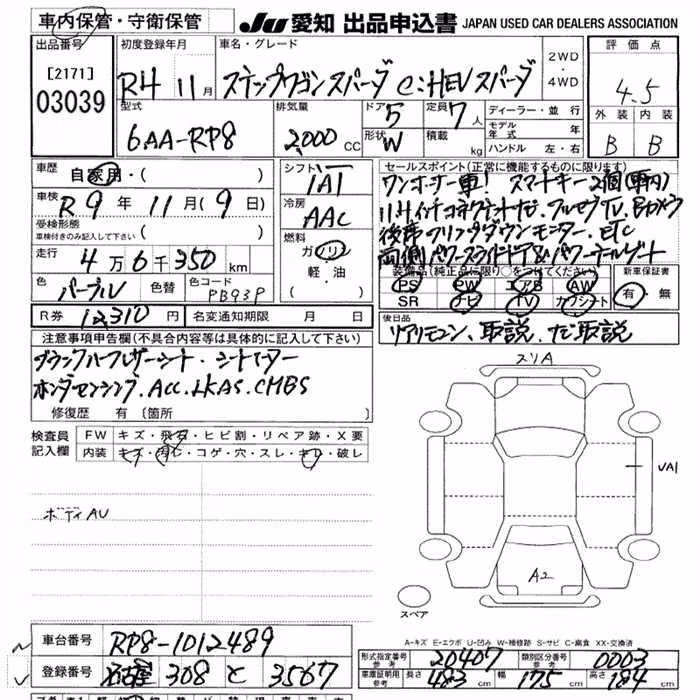 車内保管・守衛保管 JU 愛知 出品申込書 JAPAN USED CAR DEALERS ASSOCIATION
出品番号 初度登録年月 車名・グレード 2WD・4WD 評価点
[2171] R4 11月 ステップワゴンスパーダ e:HEVスパーダ 4.5
03039 型式 排気量 ドア 5 定員 7人 ディーラー・並行 外装 内装
6AA-RP8 2,000CC 形状 W 積載 kg モデル年式 年 B B
ハンドル 左・右
車歴 自家用・( ) シフト IAT セールスポイント(正常に機能するものに限ります)
車検 R9年11月(9日) 冷房 AAC ワンオーナー車! スマートキー2個(車内)
受検形態 11.4インチコネクトナビ.フルセグTV.Bカメラ
車検付きのみ記入して下さい( ) 燃料 後席フリップダウンモニター.ETC
走行 4万6千350km ガソリン 両側パワースライドドア&パワーテールゲート
軽・油
色 パープル 色替 色コード PB93P ( ) 装備品(純正品に限り○をつけてください) 新車保証書
PS PW エアB AW 有・無
SR ナビ TV カワシート
R券 12,310円 名変通知期限 月 日 後日品
注意事項申告欄(不具合内容等は具体的に記入して下さい) リアリモコン、取説、ナビ取説
ブラックハーフレザーシート.シートヒーター
ホンダセンシング.ACC.LKAS.CMBS
修復歴 有 〔箇所 〕
検査員記入欄 FW キズ・飛石・ヒビ割・リペア跡・X要
内装 キズ・汚れ・コゲ・穴・スレ・キレ・破レ
スリA
UA1
ボディAU
A2
スペア
A-キズ E-エクボ U-凹み W-補修跡 S-サビ C-腐食 XX-交換済
車台番号 RP8-1012489
登録番号 名古屋 308 と 3567
形式指定番号 参考 20407 類別区分番号 参考 0003
車庫証明用参考 長さ 483cm 幅 175cm 高さ 184cm